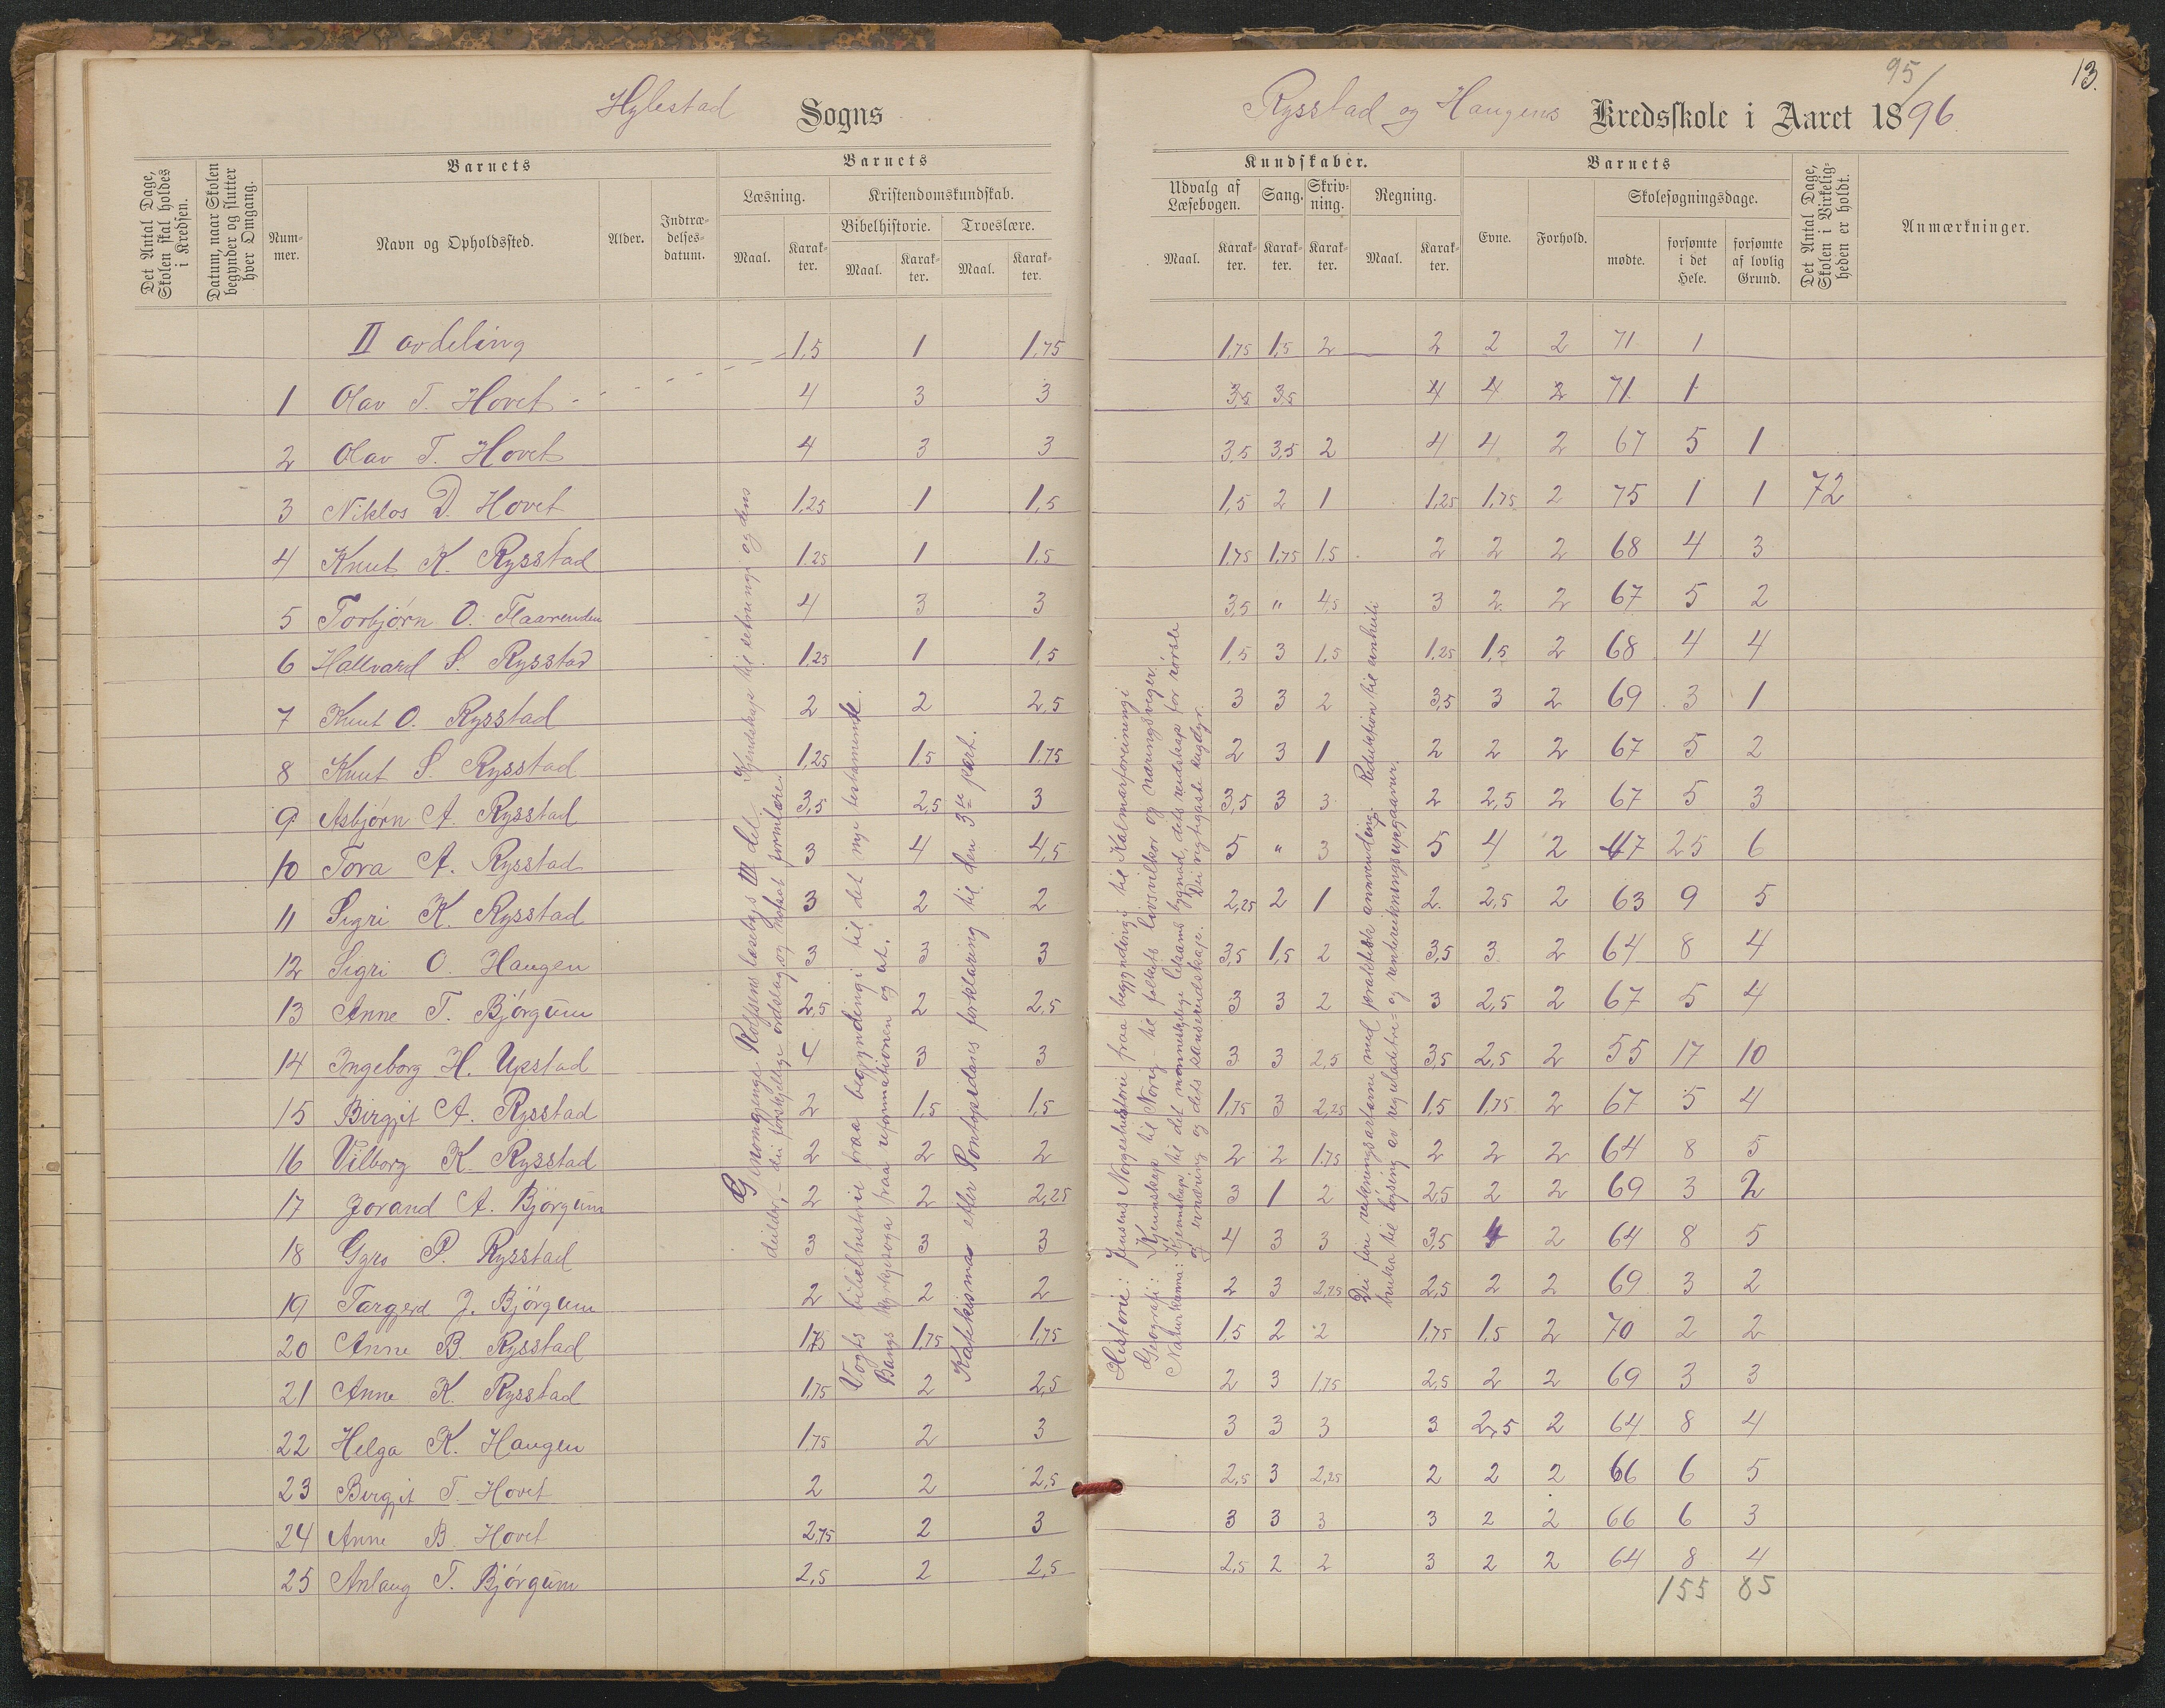 Hylestad Sogns
Rysstad og Haugens Kredsskole i Aaret 1895/96
13.
Det Antal Dage, Skolen skal holdes i Kredsen.
Datum, naar Skolen begynder og slutter hver Omgang.
Barnets
Num-mer.
Navn og Opholdssted.
Alder.
Indtræ-delses-datum.
Barnets
Læsning.
Kristendomskundskab.
Bibelhistorie. Troeslære.
Maal. Karak-ter. Maal. Karak-ter. Maal. Karak-ter.
Kundskaber.
Udvalg af Læsebogen. Sang. Skriv-ning. Regning.
Maal. Karak-ter. Karak-ter. Karak-ter. Maal. Karak-ter.
Barnets
Evne. Forhold. Skolesøgningsdage.
mødte. forsømte i det Hele. forsømte af lovlig Grund.
Det Antal Dage, Skolen i Virkelig-heden er holdt.
Anmærkninger.
II avdeling 1,5 1 1,75 1,75 1,5 2 2 2 2 71 1
1 Olav T. Hovet 4 3 3 3,5 3,5 4 4 2 71 1
2 Olav T. Hovet 4 3 3 3,5 3,5 2 4 4 2 67 5 1
3 Niklos D. Hovet 1,25 1 1,5 1,5 2 1 1,25 1,75 2 75 1 1 72
4 Knut K. Rysstad 1.25 1 1,5 1,75 1,75 1.5 2 2 2 68 4 3
5 Torbjörn O. Flaarenden 4 3 3 3,5 " 4,5 3 2 2 67 5 2
6 Hallvard S. Rysstad 1,25 1 1,5 1,5 3 1,5 1,25 1,5 2 68 4 4
7 Knut O. Rysstad 2 2 2,5 3 3 2 3,5 3 2 69 3 1
8 Knut S. Rysstad 1,25 1,5 1,75 2 3 1 2 2 2 67 5 2
9 Asbjörn A. Rysstad 3,5 2,5 3 3,5 3 3 2 2,5 2 67 5 3
10 Tora A. Rysstad 3 4 4,5 5 " 3 5 4 2 47 25 6
11 Sigri K. Rysstad 3 2 2 2,25 2 1 2 2,5 2 63 9 5
12 Sigri O. Haugen 3 3 3 3,5 1,5 2 3,5 3 2 64 8 4
13 Anne T. Björgum 2,5 2 2,5 3 3 2 3 2,5 2 67 5 4
14 Ingeborg H. Upstad 4 3 3 3 3 2,5 3,5 2,5 2 55 17 10
15 Birgit A. Rysstad 2 1,5 1,5 1,75 3 2,25 1,5 1,75 2 67 5 4
16 Vilborg K. Rysstad 2 2 2 2 2 1.75 2 2 2 64 8 5
17 Jorand A. Björgum 2 2 2,25 3 1 2 2,5 2 2 69 3 2
18 Gyro P. Rysstad 3 3 3 4 3 3 3,5 4 2 64 8 5
19 Targjerd J. Björgum 2 2 2 2 3 2,25 2,5 2 2 69 3 2
20 Anne B. Rysstad 1,75 1,75 1,75 1,5 2 2 1,75 1,5 2 70 2 2
21 Anne K. Rysstad 1,75 2 2,5 2 3 1,75 2,5 2 2 69 3 3
22 Helga K. Haugen 1,75 2 3 3 3 3 3 2,5 2 64 8 4
23 Birgit T. Hovet 2 2 2,5 2,5 3 2,25 2 2 2 66 6 5
24 Anne B. Hovet 2,75 2 3 3 3 3 3 2 2 66 6 3
25 Anlaug T. Björgum 2,5 2 2,5 2,5 2 2 3 2 2 64 8 4
155 85
Gjenomgjenge Rolfsens læseboks III del. Kjendskap til setningi og dens
deilder, – dei forskjellige ordslag og
Vogts bibelhistorie fraa begynningi til det nye testamente.
Bangs kyrkjesoga fraa reformationen og ut.
Katekismus eller Pontopidans forklaring til den 3die part.
Historie: Jensens Norgeshistorie fraa begynningi til Kalmarforeiningi
Geografi: Kjennskap til Norig – til folkets livsvilkor og næringsveger.
Naturkunna: Kjennskap til det menneskelege lekams bygnad, dets reidskap for rörsle
og ernæring og dets sansereidskape. Dei vigtigaste dugdyr.
Dei fire rekningsartarne med praktisk anvending. Reduktion til einheit
bruka til løysing av reguladetri- og renterekningsupgaavur.